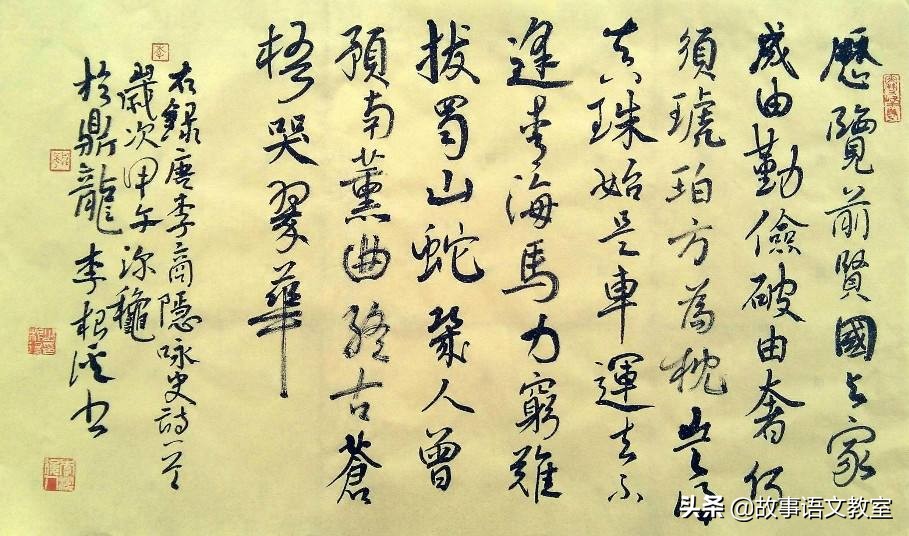 歷覽前賢國与家
成由勤儉破由奢何
須琥珀方為枕豈得
真珠始是車運去不
逢青海馬力窮難
拔蜀山蛇幾人曾
預南薰曲終古蒼
梧哭翠華
右錄唐李商隱咏史詩一首
歲次甲午深龝
於鼎龍李根溪书
头条 @故事语文教室